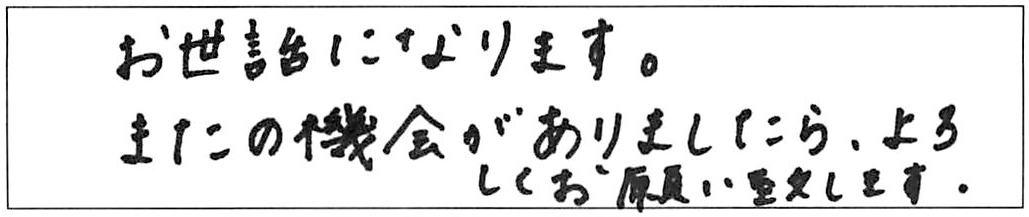 お世話になります。
またの機会がありましたら、よろ
しくお願い致します。